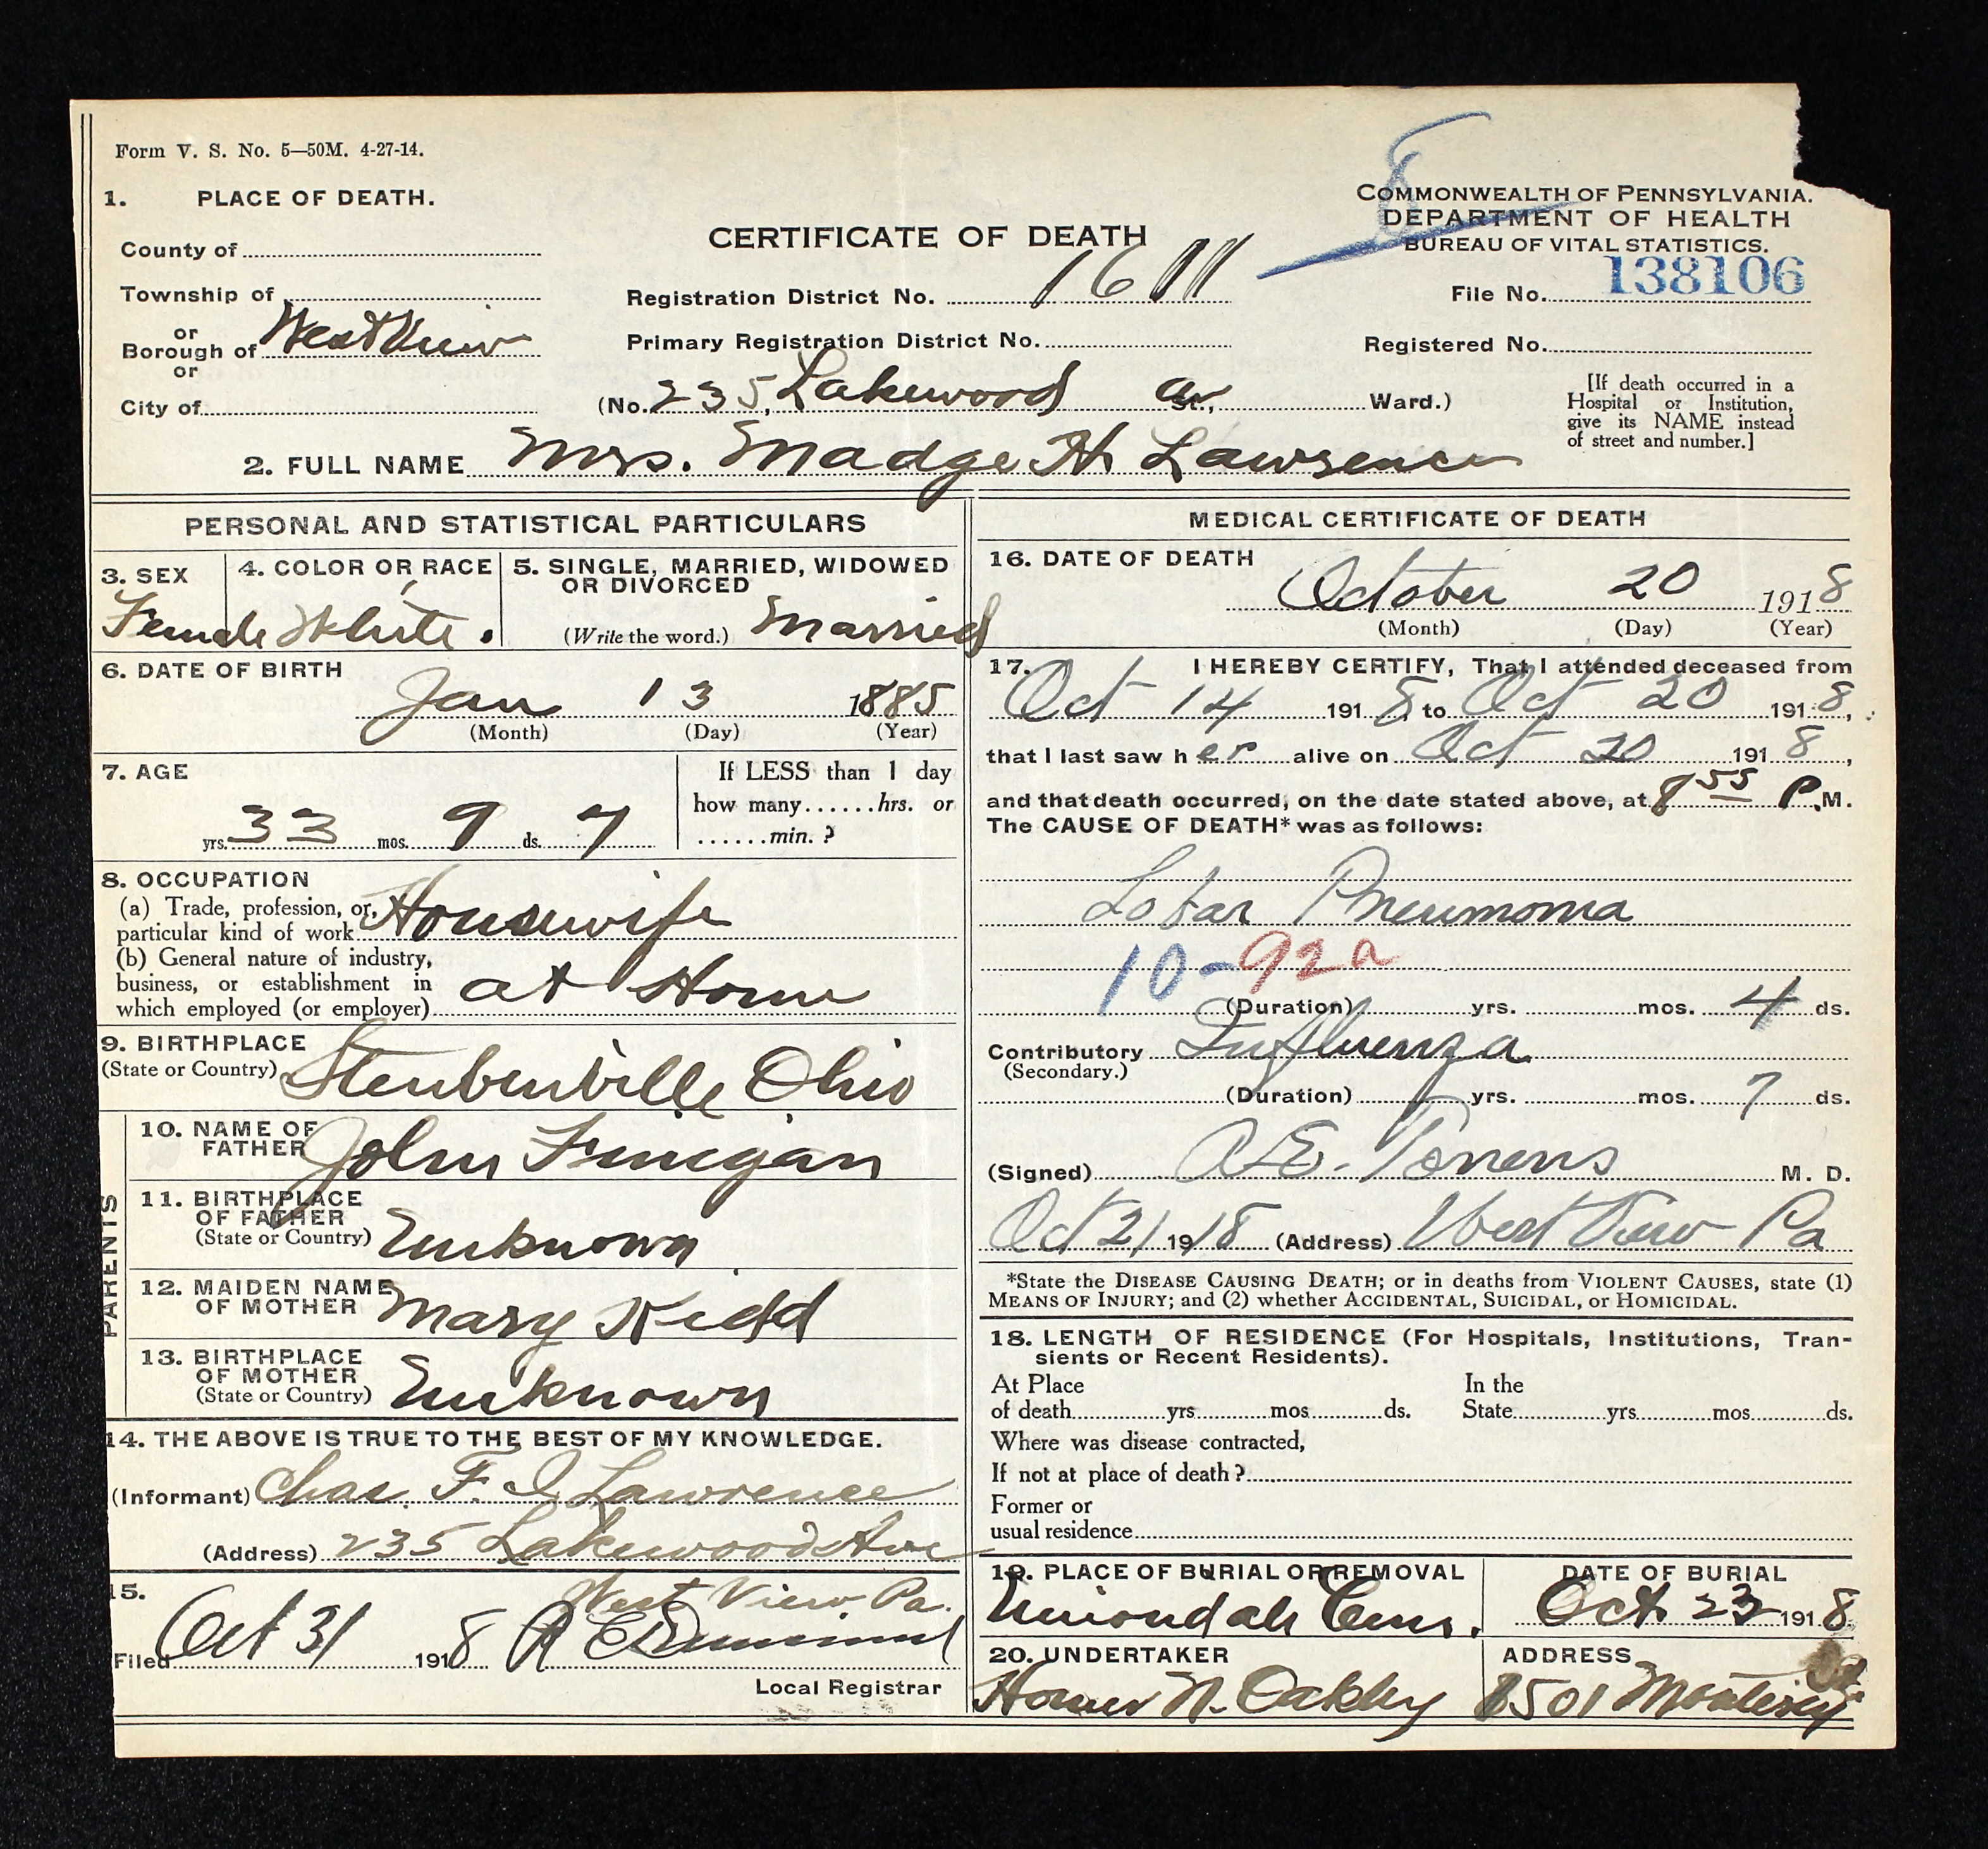 Form V. S. No. 5—50M. 4-27-14.
1. PLACE OF DEATH.
County of
Township of
or
Borough of West View
or
City of
CERTIFICATE OF DEATH
COMMONWEALTH OF PENNSYLVANIA.
DEPARTMENT OF HEALTH
BUREAU OF VITAL STATISTICS.
Registration District No. 1611
File No. 138106
Primary Registration District No.
Registered No.
(No. 235, Lakewood av St., Ward.)
[If death occurred in a
Hospital or Institution,
give its NAME instead
of street and number.]
2. FULL NAME Mrs. Madge H Lawrence
PERSONAL AND STATISTICAL PARTICULARS
3. SEX
Female
4. COLOR OR RACE
White.
5. SINGLE, MARRIED, WIDOWED
OR DIVORCED
(Write the word.) Married
6. DATE OF BIRTH
Jan 13 1885
(Month) (Day) (Year)
7. AGE
yrs. 33 mos. 9 ds. 7
If LESS than 1 day
how many......hrs. or
......min. ?
8. OCCUPATION
(a) Trade, profession, or
particular kind of work Housewife
(b) General nature of industry,
business, or establishment in
which employed (or employer) at Home
9. BIRTHPLACE
(State or Country) Steubenville Ohio
PARENTS
10. NAME OF
FATHER John Finigan
11. BIRTHPLACE
OF FATHER
(State or Country) Unknown
12. MAIDEN NAME
OF MOTHER Mary Kidd
13. BIRTHPLACE
OF MOTHER
(State or Country) Unknown
14. THE ABOVE IS TRUE TO THE BEST OF MY KNOWLEDGE.
(Informant) Chas. F. I Lawrence
(Address) 235 Lakewood Ave
West View Pa.
15.
Filed Oct 31 1918
Local Registrar
MEDICAL CERTIFICATE OF DEATH
16. DATE OF DEATH
October 20 1918
(Month) (Day) (Year)
17. I HEREBY CERTIFY, That I attended deceased from
Oct 14 1918, to Oct 20 1918,
that I last saw her alive on Oct 20 1918,
and that death occurred, on the date stated above, at 8 55 P.M.
The CAUSE OF DEATH* was as follows:
Lobar Pneumonia
10-92a
(Duration) yrs. mos. 4 ds.
Contributory Influenza
(Secondary.)
(Duration) yrs. mos. 7 ds.
(Signed) M. D.
Oct 21 1918 (Address) West View Pa
*State the DISEASE CAUSING DEATH; or in deaths from VIOLENT CAUSES, state (1)
MEANS OF INJURY; and (2) whether ACCIDENTAL, SUICIDAL, or HOMICIDAL.
18. LENGTH OF RESIDENCE (For Hospitals, Institutions, Tran-
sients or Recent Residents).
At Place
of death yrs mos ds.
In the
State yrs mos ds.
Where was disease contracted,
If not at place of death ?
Former or
usual residence
19. PLACE OF BURIAL OR REMOVAL
Uniondale Cem.
DATE OF BURIAL
Oct. 23 1918
20. UNDERTAKER
Homer N. Oakley
ADDRESS
1501 Monterey St.